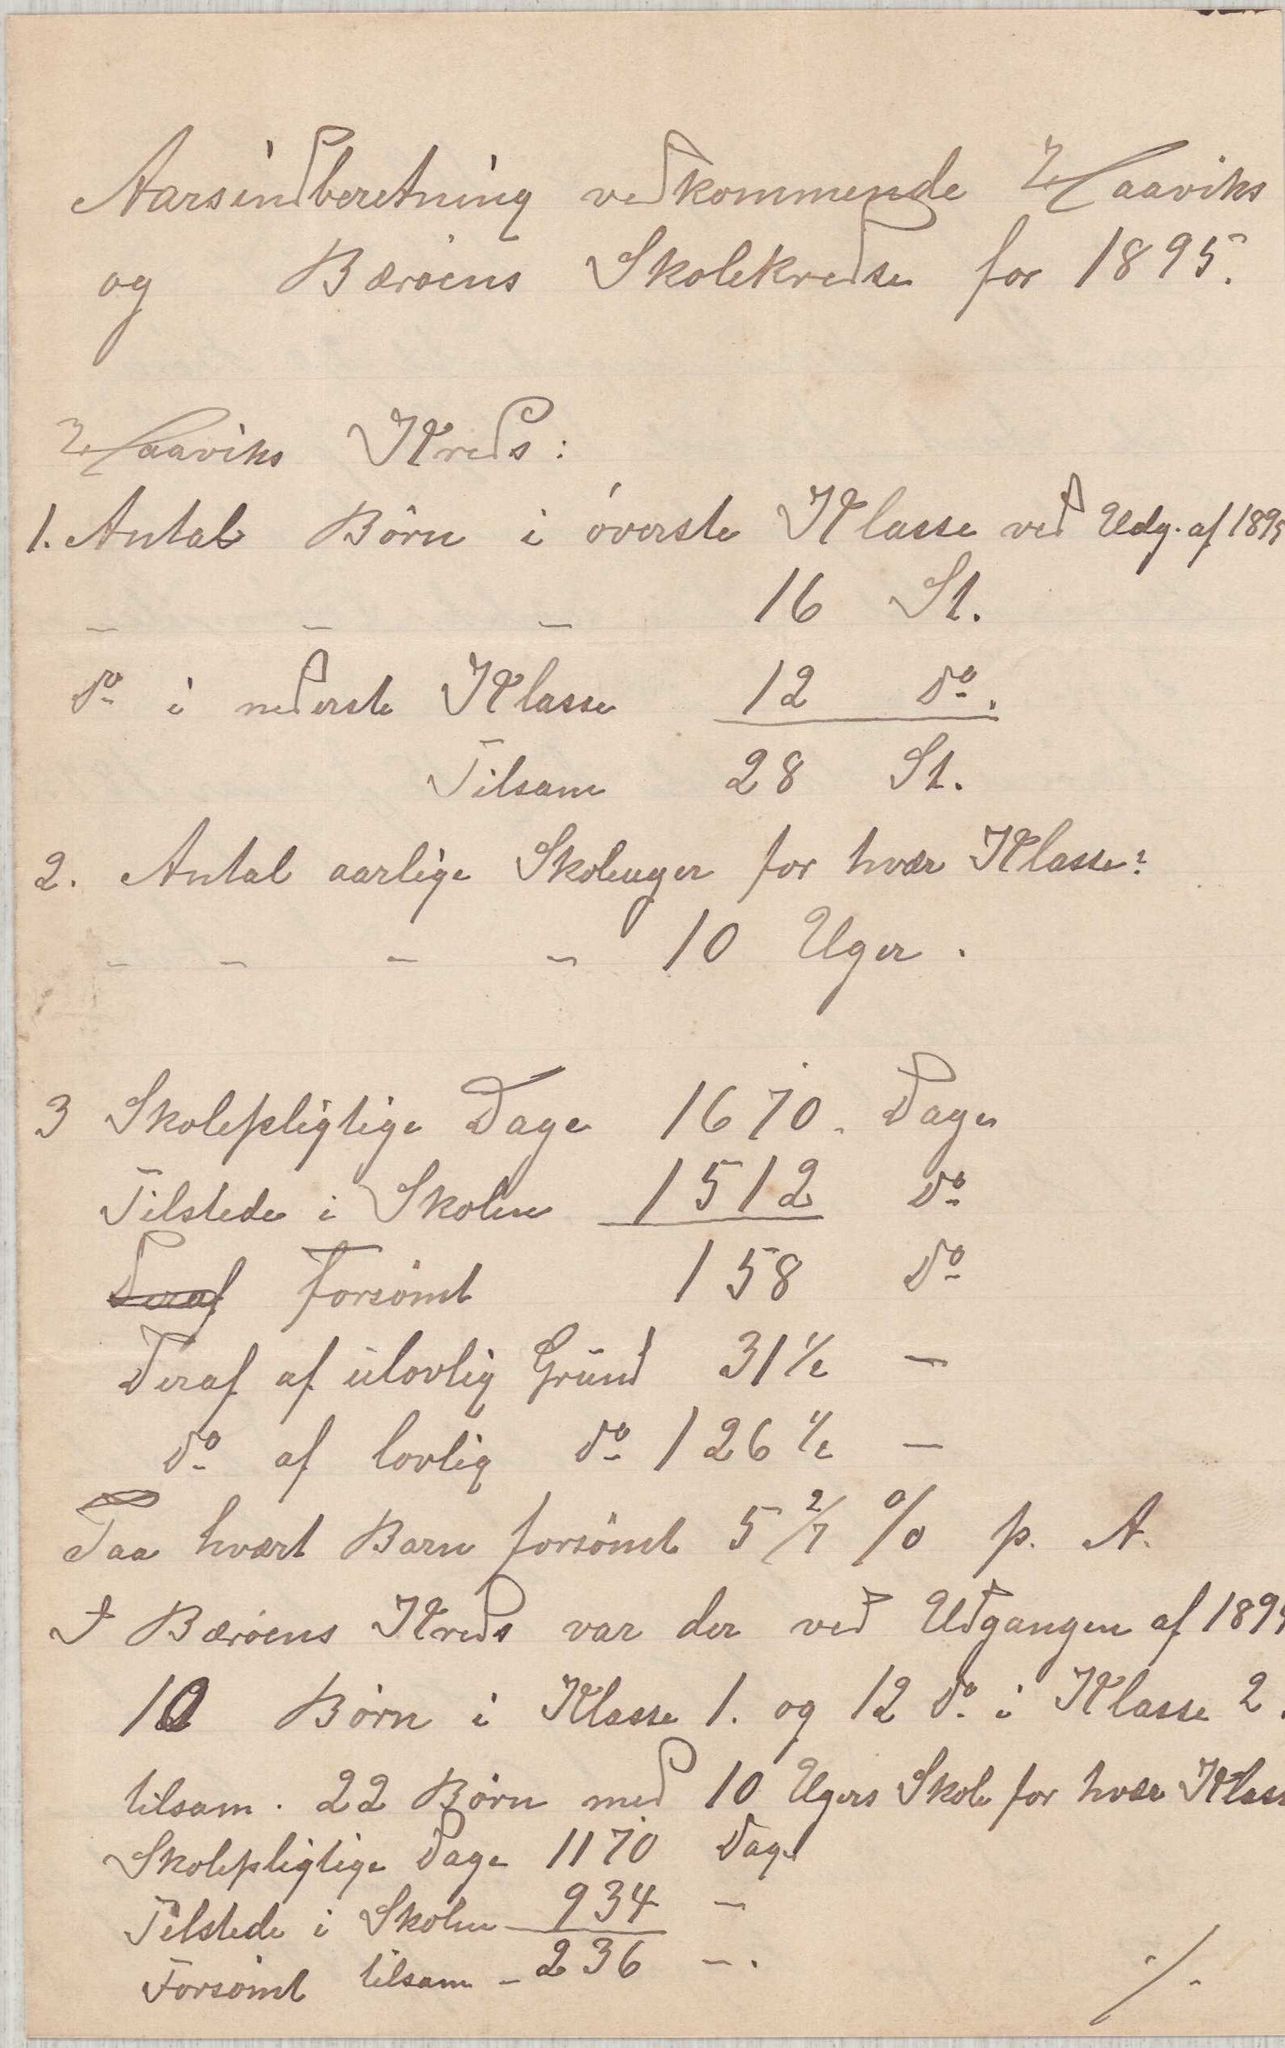 Aarsindberetning vedkommende Haaviks
og Bærøens Skolekredse for 1895.
Haaviks Kreds:
1. Antal Børn i øverste Klasse ved Udg. af 1895
– – – 16 St.
do i nederste Klasse 12 do.
Tilsam 28 St.
2. Antal aarlige Skoleuger for hvær Klasse?
– – – – 10 Uger.
3 Skolepligtige Dage 1670. Dage
Tilstede i Skolen 1512 do
Deraf Forsømt 158 do
Deraf af ulovlig Grund 31 1/2 –
do af lovlig do 126 1/2 –
Paa hvært Barn forsømt 5 2/7 % p. A.
I Bærøens Kreds var der ved Udgangen af 1895
10 Børn i Klasse 1. og 12 do. i Klasse 2.
tilsam. 22 Børn med 10 Ugers Skole for hvær Klass
Skolepligtige Dage 1170 Dage
Tilstede i Skolen 934 –
Forsømt tilsam – 236 –.
./.